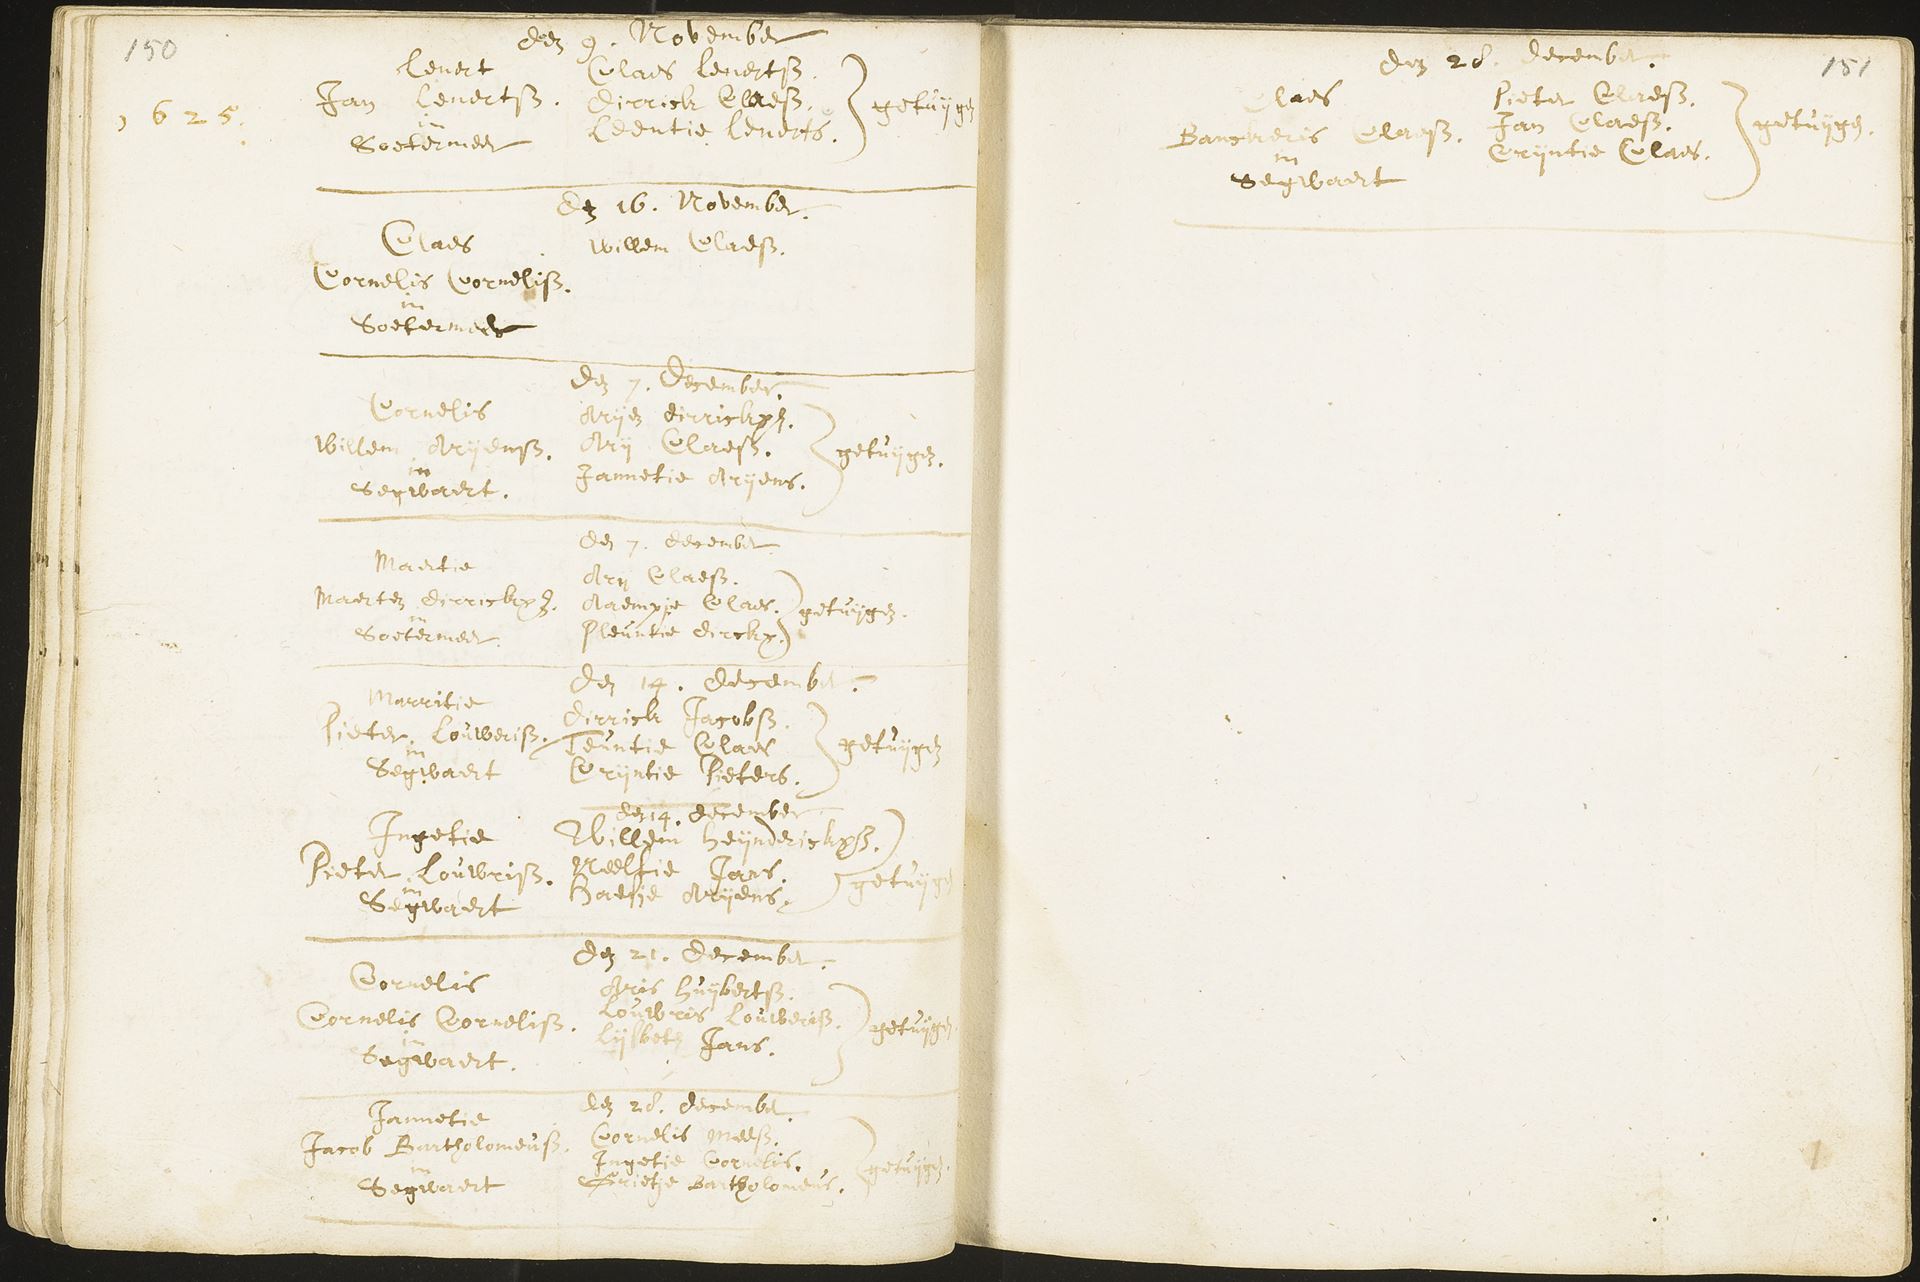 150
1625.
den 9. November
Lenert
Jan Lenertsß.
in
Soetermeer
Claes Lenertsß.
Dirrick Claesß.
Leentie Lenerts.
getuijgen
den 16. November.
Claes
Cornelis Cornelisß.
in
Soetermeer
Willem Claesß.
den 7. December.
Cornelis
Willem Arijensß.
in
Segwaert.
Arijen Dirrickxz.
Arij Claesß.
Jannetie Arijens.
getuijgen.
den 7. december
Maertie
Maerten Dirrickxz.
in
Soetermeer.
Arij Claesß.
Aaempje Claes.
Pleuntie Dirckx.
getuijgen.
den 14. december.
Marritie
Pieter Louwerisß.
in
Segwaert
Dirrick Jacobsß.
Teuntie Claes
Crijntie Pieters.
getuijgen
den 14. december
Ingetie
Pieter Louwrisß.
in
Segwaert
Willem Heijnderickxß.
Neeltie Jans.
Haesje Arijens.
getuijgen
den 21. December.
Cornelis
Cornelis Cornelisß.
in
Segwaert.
Aris Huijbertsß.
Louwris Louwerisß.
Lijsbeth Jans.
getuijgen.
den 28. december.
Jannetie
Jacob Bartholomeusß.
in
Segwaert
Cornelis Meesß.
Ingetie Cornelis.
Grietje Bartholomeus.
getuijgen.
151
den 28. december.
Claes
Claesß.
in
Segwaert
Pieter Claesß.
Jan Claesß.
Crijntie Claes.
getuijgen.